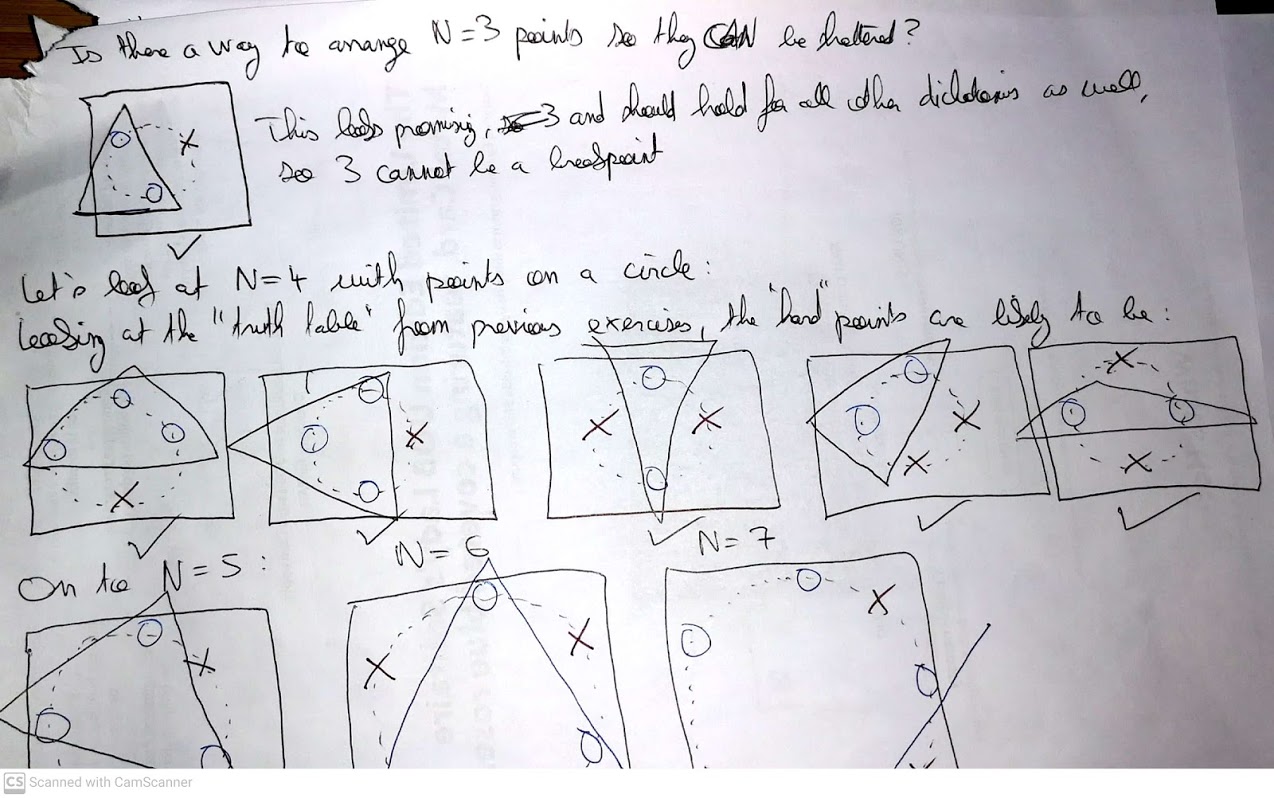 Is there a way to arrange N=3 points so they CAN be shattered?
This looks promising, 3 and should hold for all other dichotomies as well,
so 3 cannot be a breakpoint
Let's look at N=4 with points on a circle:
Looking at the "truth table" from previous exercises, the "hard" points are likely to be:
On to N=5:
N=6
N=7
CS Scanned with CamScanner